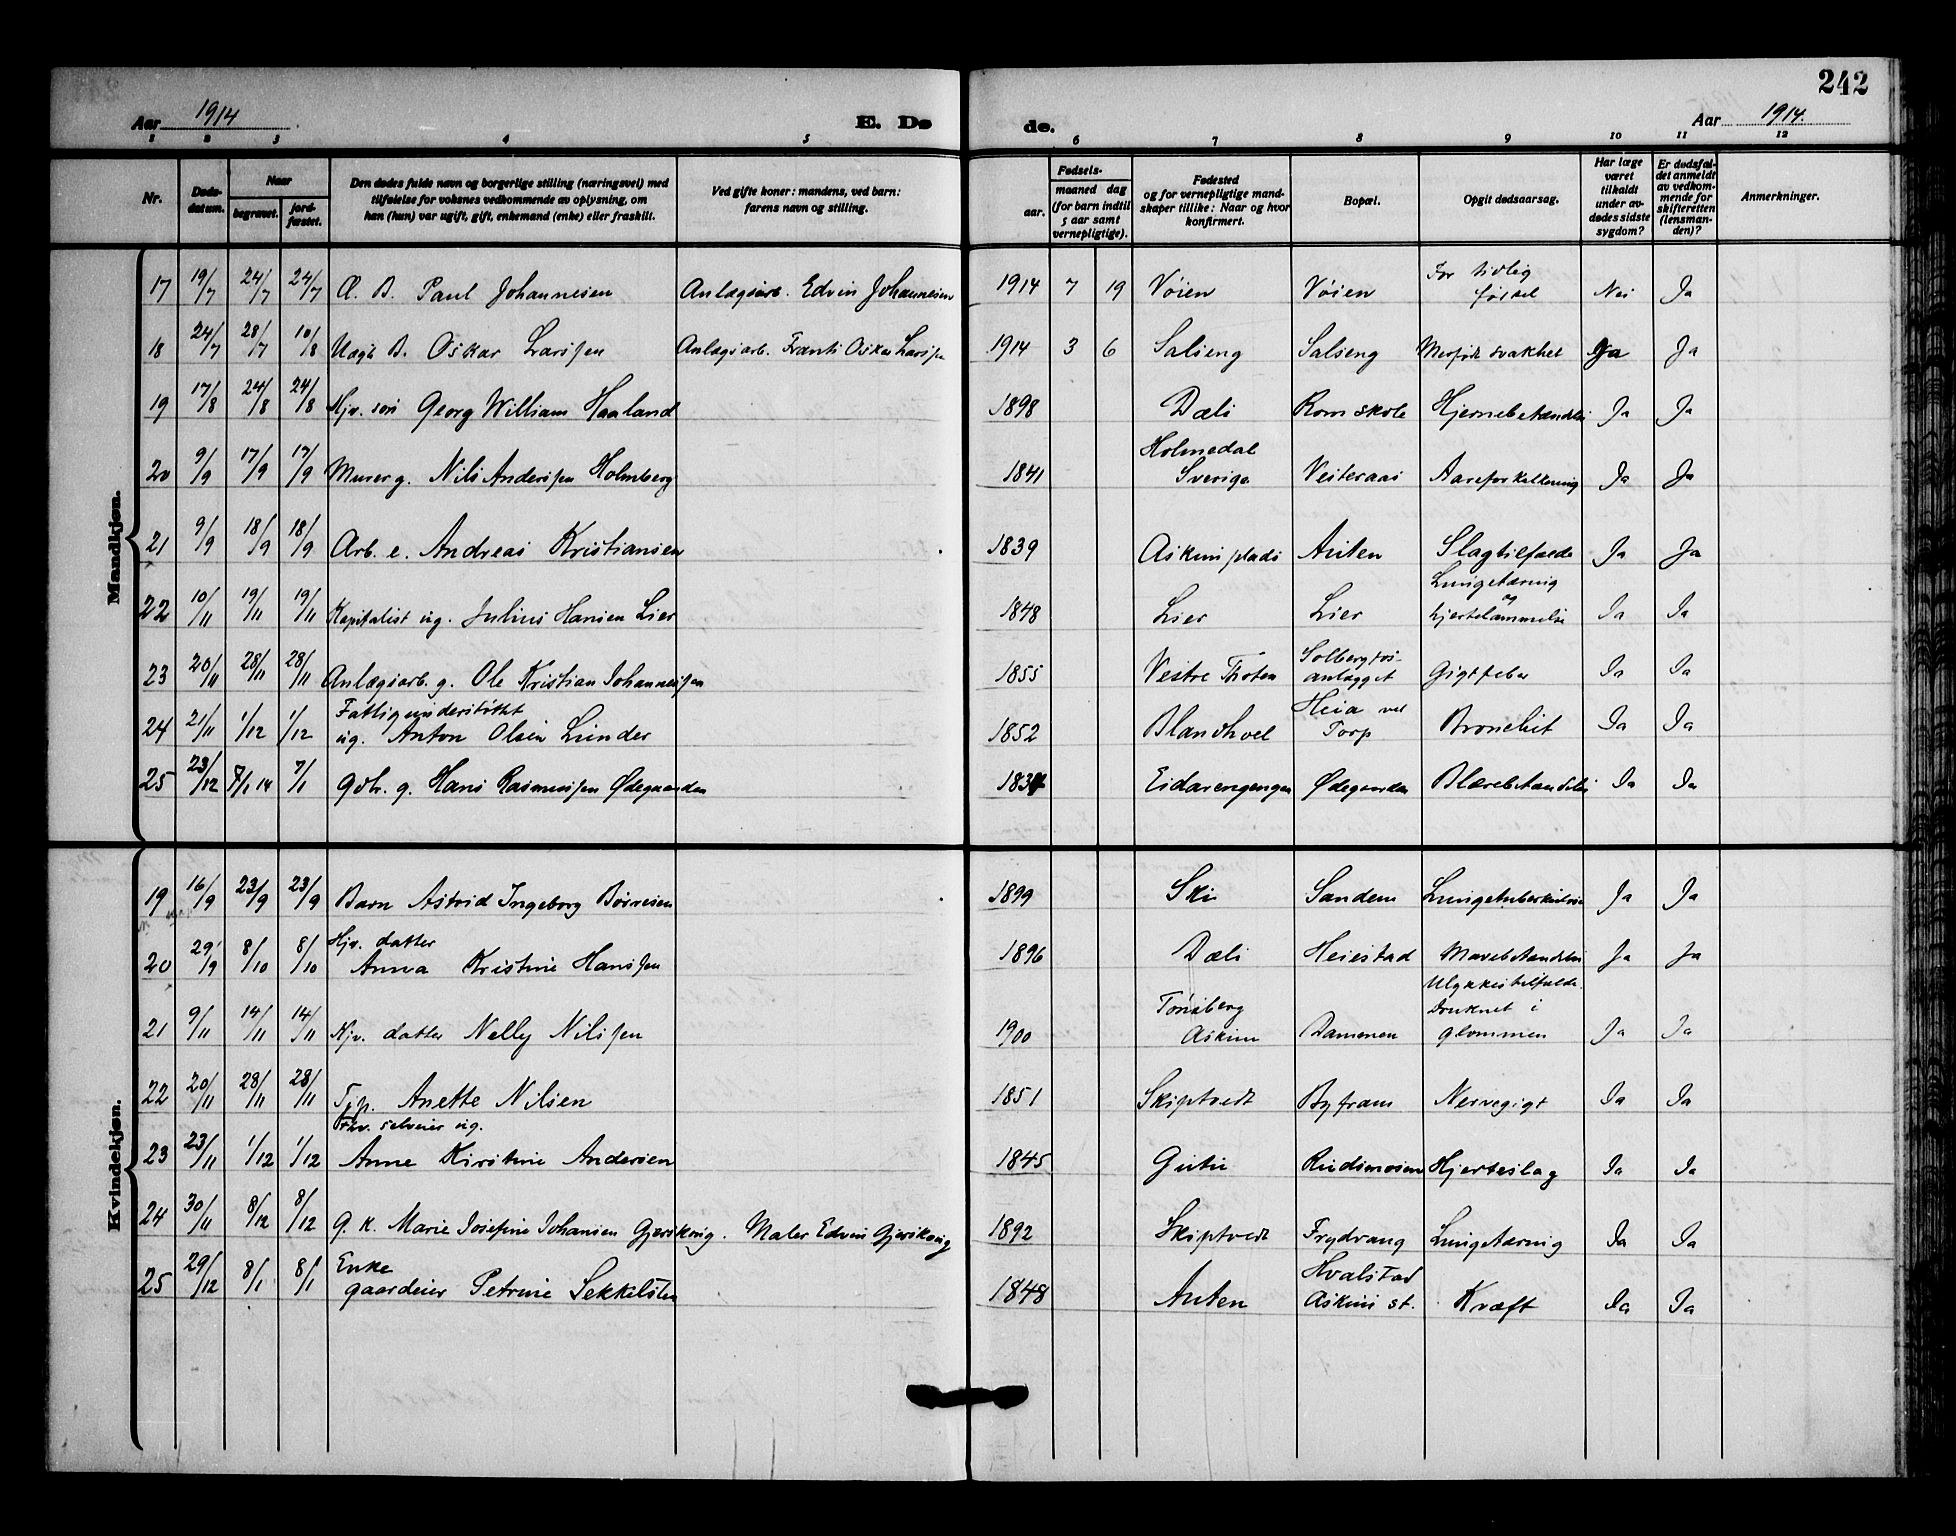 242
Aar 1914
E. Dø
de.
Aar 1914.
1 2 3 4 5 6 7 8 9 10 11 12
Nr.
Døds-
datum.
Naar
begravet.
jord-
fæstet.
Den dødes fulde navn og borgerlige stilling (næringsvei) med
tilføielse for voksnes vedkommende av oplysning, om
han (hun) var ugift, gift, enkemand (enke) eller fraskilt.
Ved gifte koner: mandens, ved barn:
farens navn og stilling.
Fødsels-
aar.
maaned dag
(for barn indtil
5 aar samt
vernepligtige).
Fødested
og for vernepligtige mand-
skaper tillike: Naar og hvor
konfirmert.
Bopæl.
Opgit dødsaarsag.
Har læge
været
tilkaldt
under av-
dødes sidste
sygdom?
Er dødsfal-
det anmeldt
av vedkom-
mende for
skifteretten
(lensman-
den)?
Anmerkninger.
Mandkjøn.
17 19/7 24/7 24/7 Æ. B. Paul Johannesen Anlægsarb. Edvin Johannesen 1914 7 19 Vøien Vøien For tidlig
født Nei Ja
18 24/7 28/7 10/8 Uægt B. Oskar Larssen Anlægsarb. Frants Oskar Larssen 1914 3 6 Salseng Salseng Medfødt svakhet Ja Ja
19 17/8 24/8 24/8 Hjv. søn Georg William Haaland 1898 Dæli Rom skole Hjernebetændelse Ja Ja
20 9/9 17/9 17/9 Murer g. Nils Anderssen Holmberg 1841 Holmedal
Sverige Vesteraas Aareforkalkning Ja Ja
21 9/9 18/9 18/9 Arb. e. Andreas Kristiansen 1839 Askim plads Auten Slagtilfælde Ja Ja
22 10/11 19/11 19/11 Kapitalist ug. Julius Hansen Lier 1848 Lier Lier Lungetæring
og
hjertelammelse Ja Ja
23 20/11 28/11 28/11 Anlægsarb. g. Ole Kristian Johannessen 1855 Vestre Thoten Solbergfos-
anlægget Gigtfeber Ja Ja
24 21/11 1/12 1/12 Fattigunderstøttet
ug. Anton Olsen Lunder 1852 Blandhoel Heia ved
Torp Bronchit Ja Ja
25 23/12 7/1 14 7/1 Gdb. g. Hans Rasmussen Ødegaarden 1834 Eidarengengen Ødegaarden Blærebetændelse Ja Ja
Kvindekjøn.
19 16/9 23/9 23/9 Barn Astrid Ingeborg Børresen 1899 Ski Sandem Lungetuberkulose Ja Ja
20 29/9 8/10 8/10 Hjv. datter
Anna Kristine Hanssen 1896 Dæli Heiestad Mavebetændelse Ja Ja
21 9/11 14/11 14/11 Hjv. datter Nelly Nilssen 1900 Tønsberg
Askim Dammen Ulykkestilfælde.
Druknet i
Glommen Ja Ja
22 20/11 28/11 28/11 Anette Nilsen 1851 Skiptvedt Byfram Nervegigt Ja Ja
23 23/11 1/12 1/12 Fhv. selveier ug.
Anne Kirstine Andersen 1845 Gutu Rudsmosen Hjerteslag Ja Ja
24 30/11 8/12 8/12 G. k. Marie Josefine Johansen Gjerskoug. Maler Edvin Gjerskoug 1892 Skiptvedt Frydvang Lungetæring Ja Ja
25 29/12 8/1 8/1 Enke
gaardeier Petrine Sekkelsten 1848 Auten Hvalstad
Askim st. Kræft Ja Ja